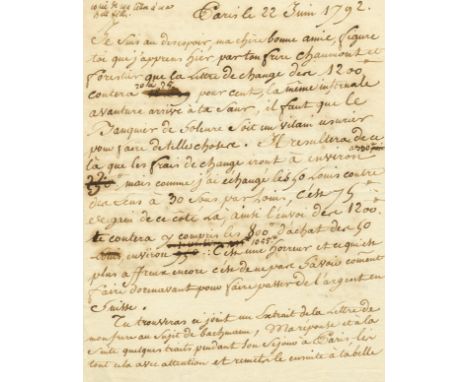 Paris le 22 Juin 1792.
Je suis au desespoir, ma chere bonne amie, figure
toi que j'apprens hier par ton frere chaumont et
Forestier que la Lettre de change des 1200#
coutera 20 a 26 pour cent, la même infernale
avanture arrive à la Sœur, il faut que le
Banquier de Soleure soit un vilain usurier
pour faire de telles choses. Il resultera de ce
là que les frais de change iront à environ
mais comme j'ai échangé les 50 Louis contre
des Ecus à 30 Sous par Louis, c'est 75#
de gain de ce coté là; ainsi l'envoi des 1200#
te coutera y compris les d'achat des 50
Louis environ : c'est une horreur et ce qui est
plus affreux encore c'est de ne pas savoir coment
faire dorenavant pour faire passer de l'argent en
Suisse.
Tu trouveras ci joint un Extrait de la Lettre de
mon frere au Sujet de bachmann, et à la
Suite quelques traits pendant son Sejour à Paris. Lis
tout cela avec attention et remets le ensuite à la belle